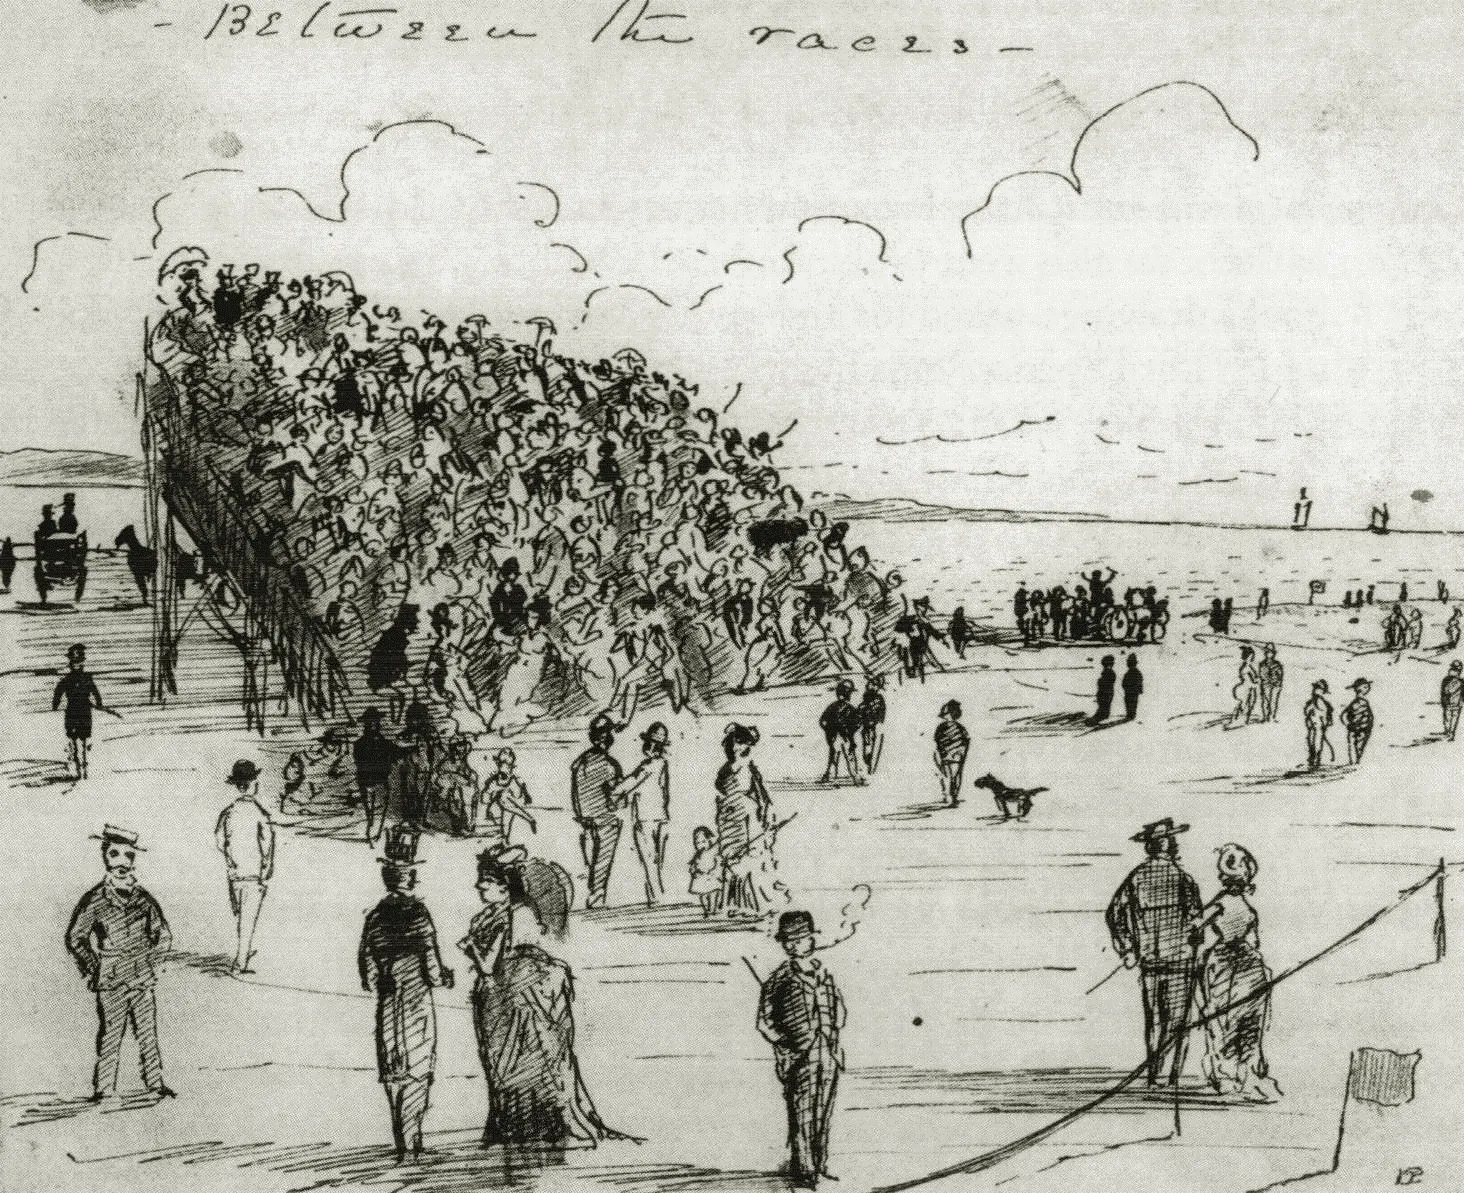 - Between the races -